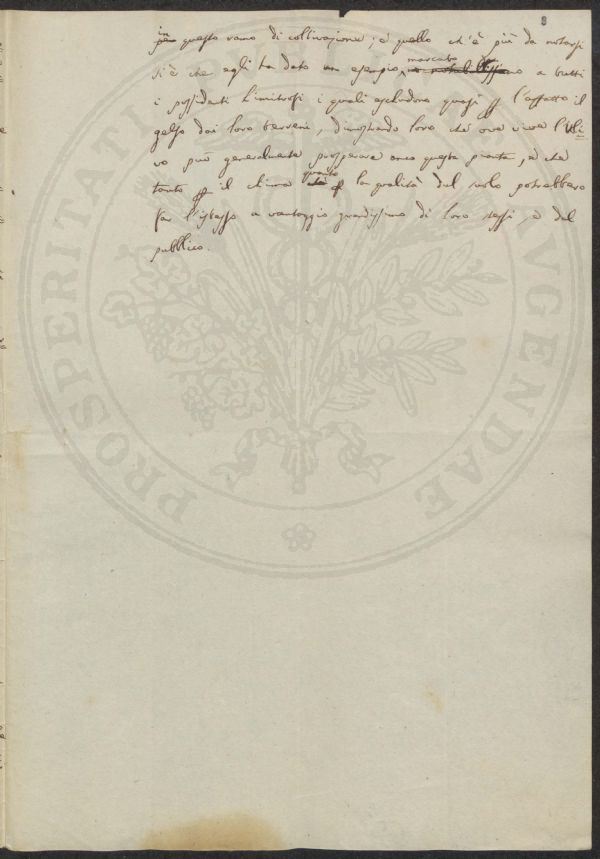 8
in questo ramo di coltivazione; e quello ch'è più da notarsi
si è che egli ha dato un esempio marcato a tutti
i possidenti limitrofi i quali escludono quasi per l'affatto il
gelso dai loro terreni, dimostrando loro che ove vive l'Uli-
vo può generalmente prosperare anco questa pianta, e che
tanto per il clima quanto per la qualità del suolo potrebbero
far l'istesso a vantaggio grandissimo di loro stessi, e del
pubblico.
PROSPERITATI PUBLICAE AUGENDAE